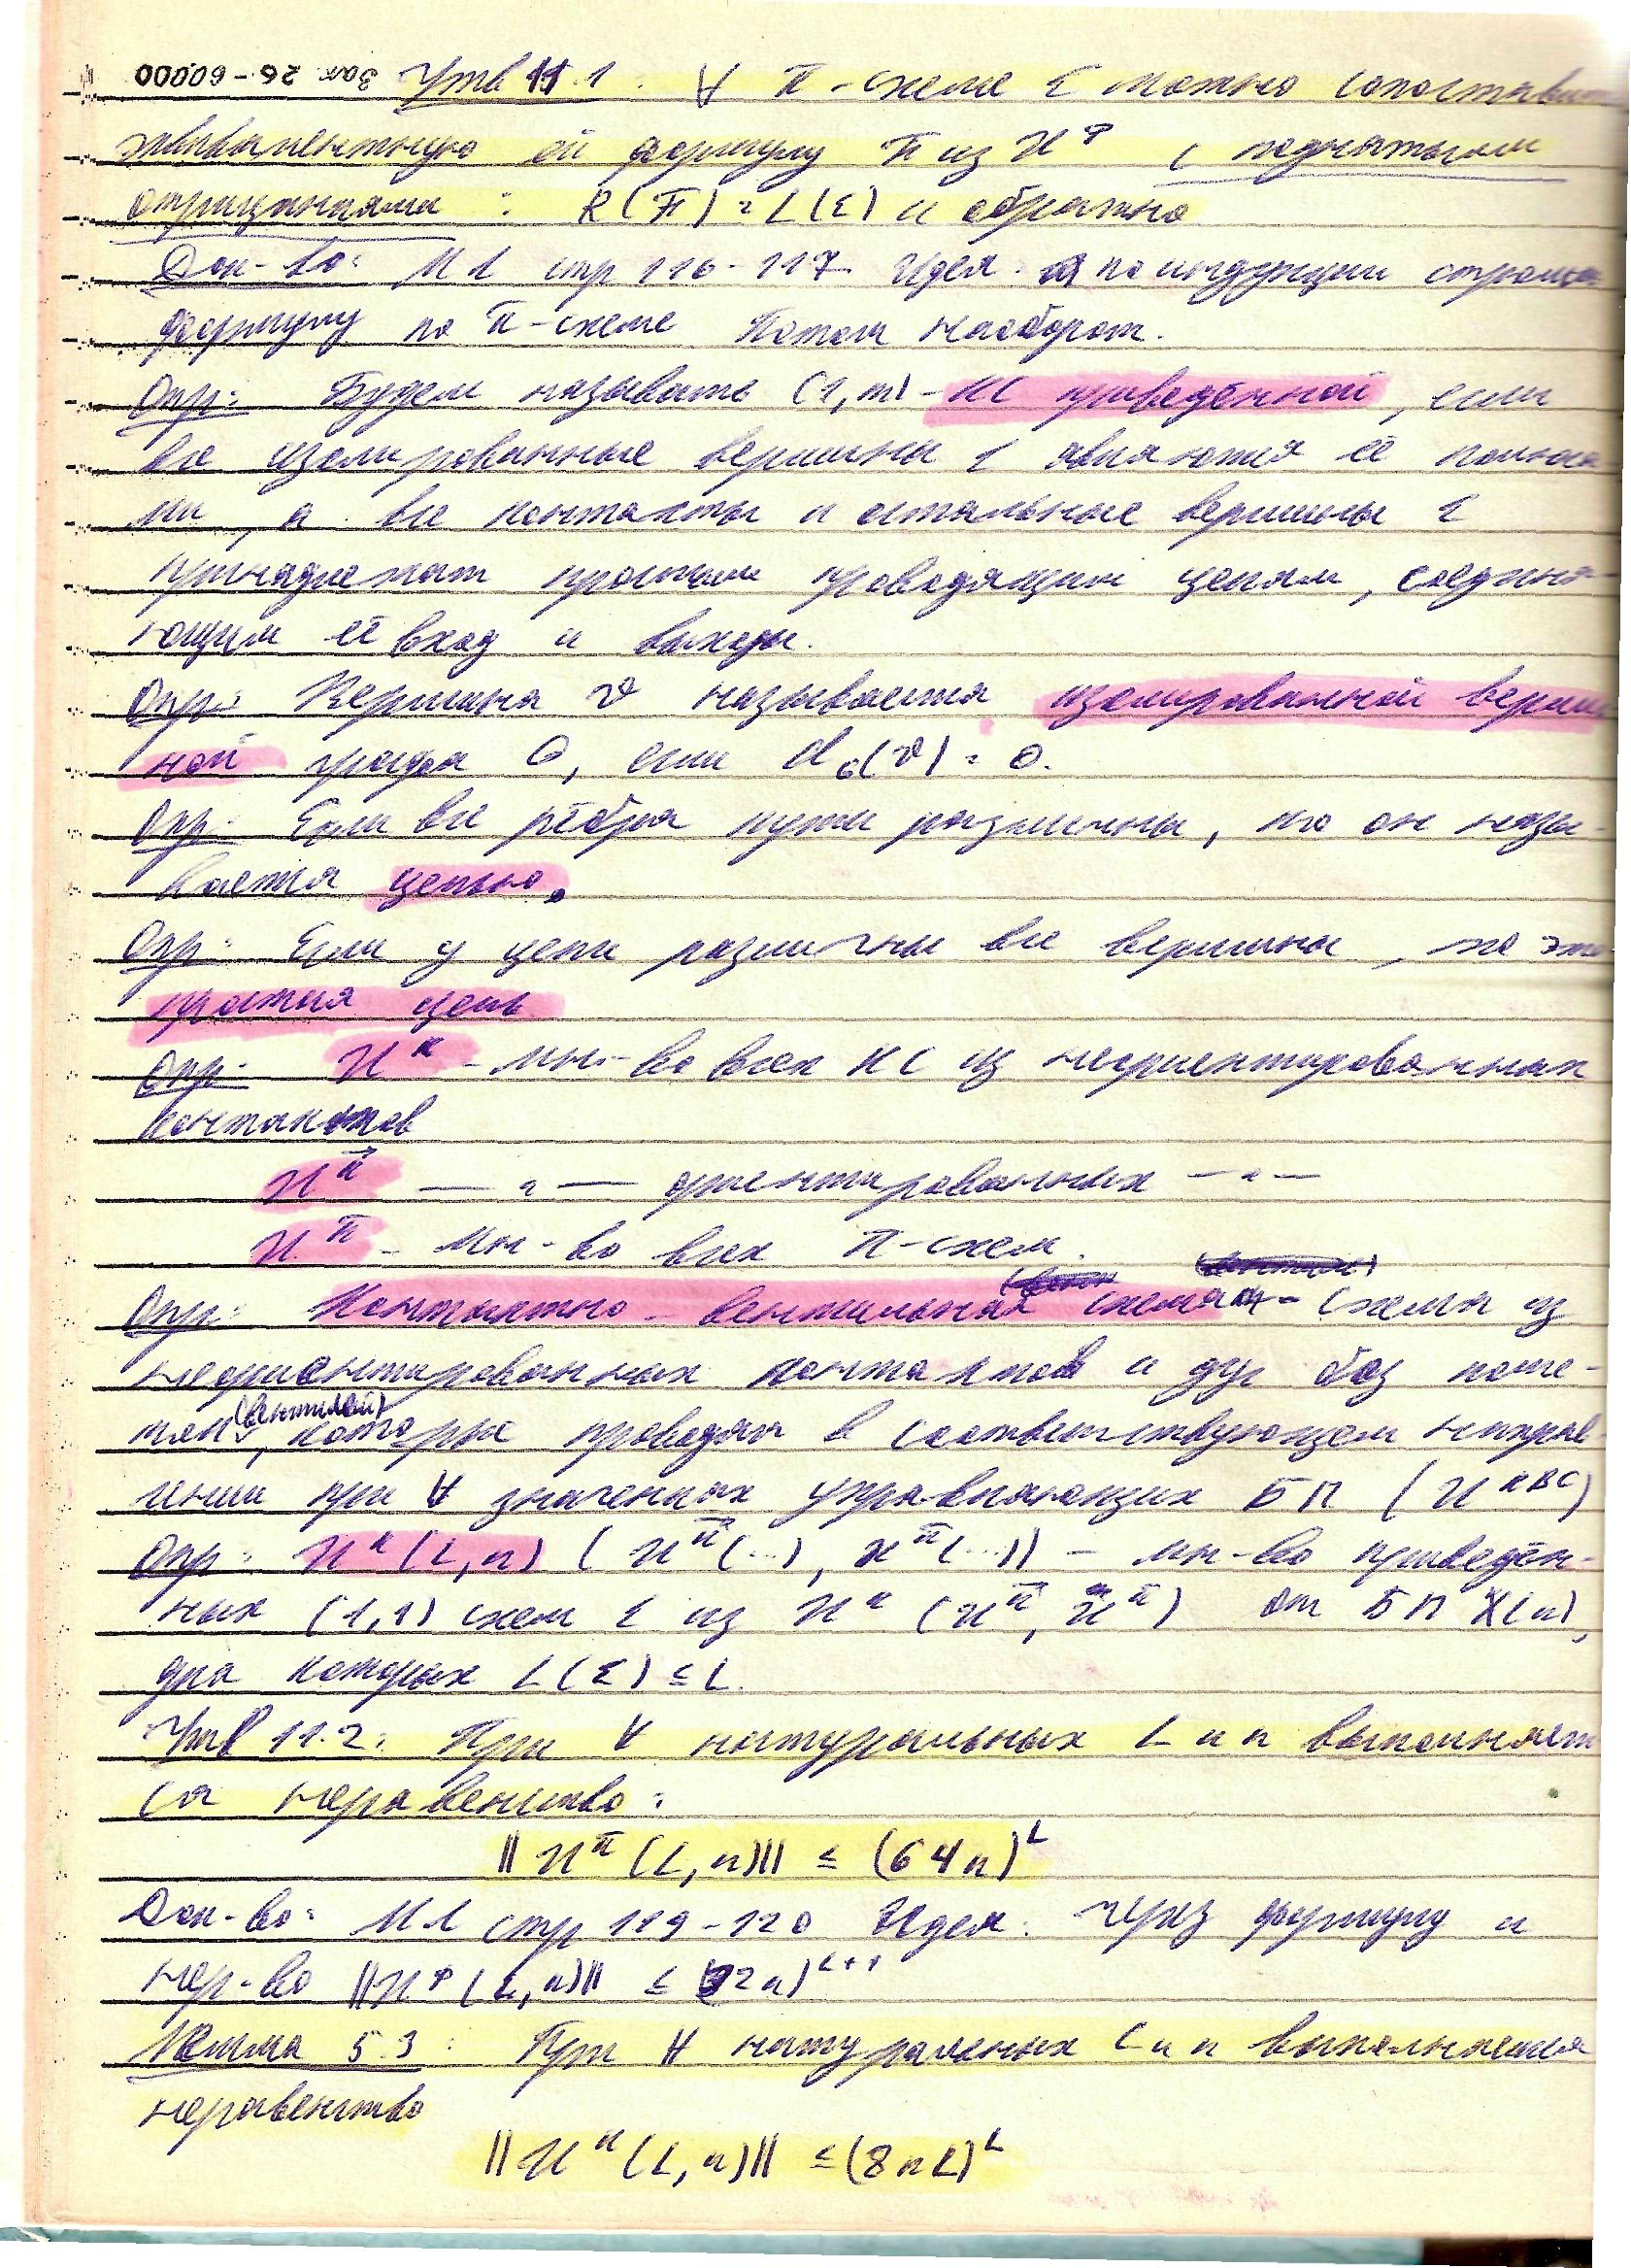 Зак. 26 - 60000 Утв 11.1. ∀ π-схеме Σ можно сопоставить
эквивалентную ей формулу F из U^Ф с поднятыми
отрицаниями : R(F) = L(Σ) и обратно
Док-во: МЛ стр 116-117 Идея. по индукции строим
формулу по π-схеме Потом наоборот.
Опр: Будем называть (1,m)-КС приведённой, если
все изолированные вершины Σ являются её полюса
ми, а все контакты и остальные вершины Σ
принадлежат простым проводящим цепям, соединя-
ющим её вход и выходы.
Опр: Вершина v называется изолированной верши
ной графа G, если d_G(v) = 0.
Опр: Если все рёбра пути различны, то он назы-
вается цепью.
Опр: Если у цепи различны все вершины, то это
простая цепь
Опр: U^к - мн-во всех КС из неориентированных
контактов
U^к⃗ — " — ориентированных — " —
U^π - мн-во всех π-схем.
Опр: Контактно-вентильная схема - схема из
неориентированных контактов и дуг без поме-
ток (вентилей), которые проводят в соответствующем направ-
лении при ∀ значениях управляющих БП (U^КВС)
Опр: U^к(L,n) (U^к⃗(...), U^π(...)) - мн-во приведён-
ных (1,1) схем Σ из U^к (U^к⃗, U^π) от БП X(n),
для которых L(Σ) ≤ L.
Утв 11.2: При ∀ натуральных L и n выполняет
ся неравенство:
||U^π(L,n)|| ≤ (64n)^L
Док-во: МЛ стр 119-120 Идея: через формулу и
нер-во ||U^Ф(L,n)|| ≤ (32n)^{L+1}
Лемма 5.3: При ∀ натуральных L и n выполняется
неравенство
||U^к(L,n)|| ≤ (8nL)^L